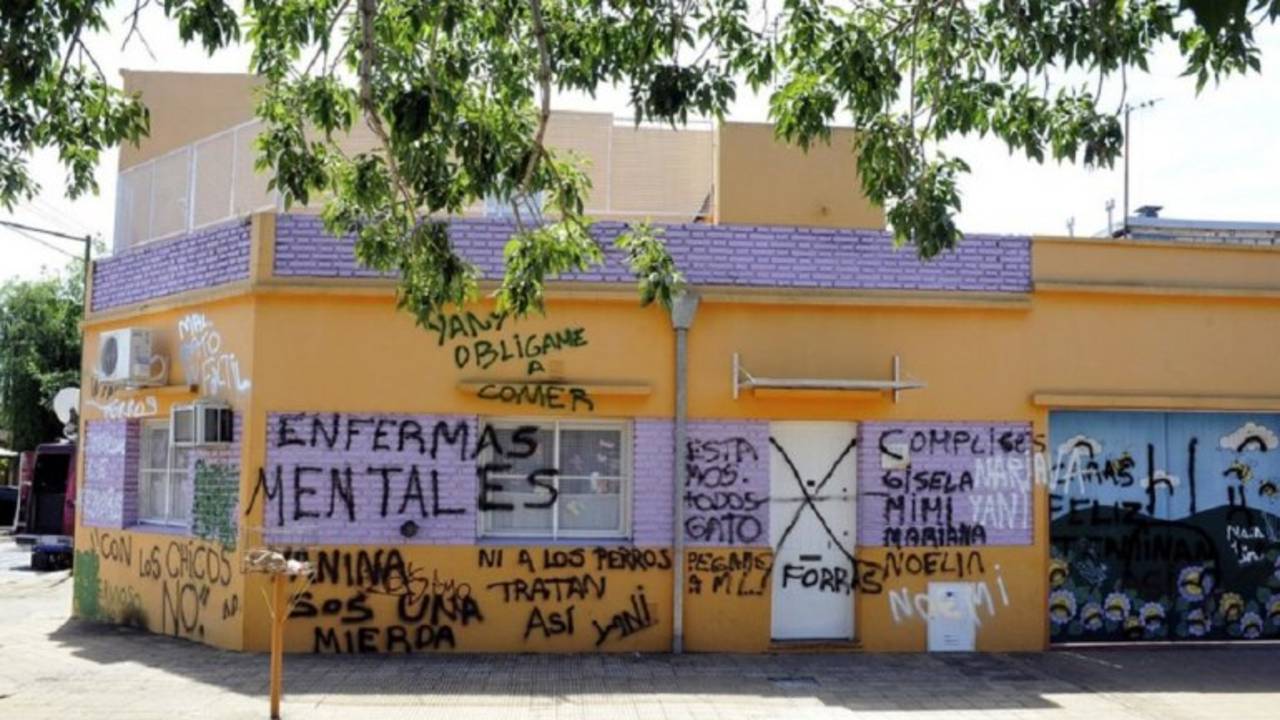 MAL
YANY
OBLIGAME
A
COMER
PERROS
ENFERMAS
MENTALES
ESTA
MOS.
TODOS
GATO
COMPLICES
GISELA
MIMI
MARIANA
NOELIA
MARIANA
YANI
FELIZ
"CON LOS CHICOS
NO".
YANINA
SOS UNA
MIERDA
NI A LOS PERROS
TRATAN
ASÍ YANi
PEGAME
A MI
FORRAS
NOEMi